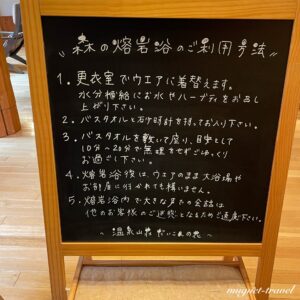 森の熔岩浴のご利用方法
1. 更衣室でウエアに着替えます。
水分補給にお水やハーブティをお召し
上がり下さい。
2. バスタオルと砂時計を持ってお入り下さい。
3. バスタオルを敷いて座り、目安として
10分~20分で無理をせずごゆっくり
お過ごし下さい。
4. 熔岩浴後は、ウェアのまま大浴場や
お部屋に行かれても構いません。
5. 熔岩浴内で大きな声での会話は
他のお客様のご迷惑となるためご遠慮下さい。
~ 温泉山荘だいこんの花 ~
mugiet-travel